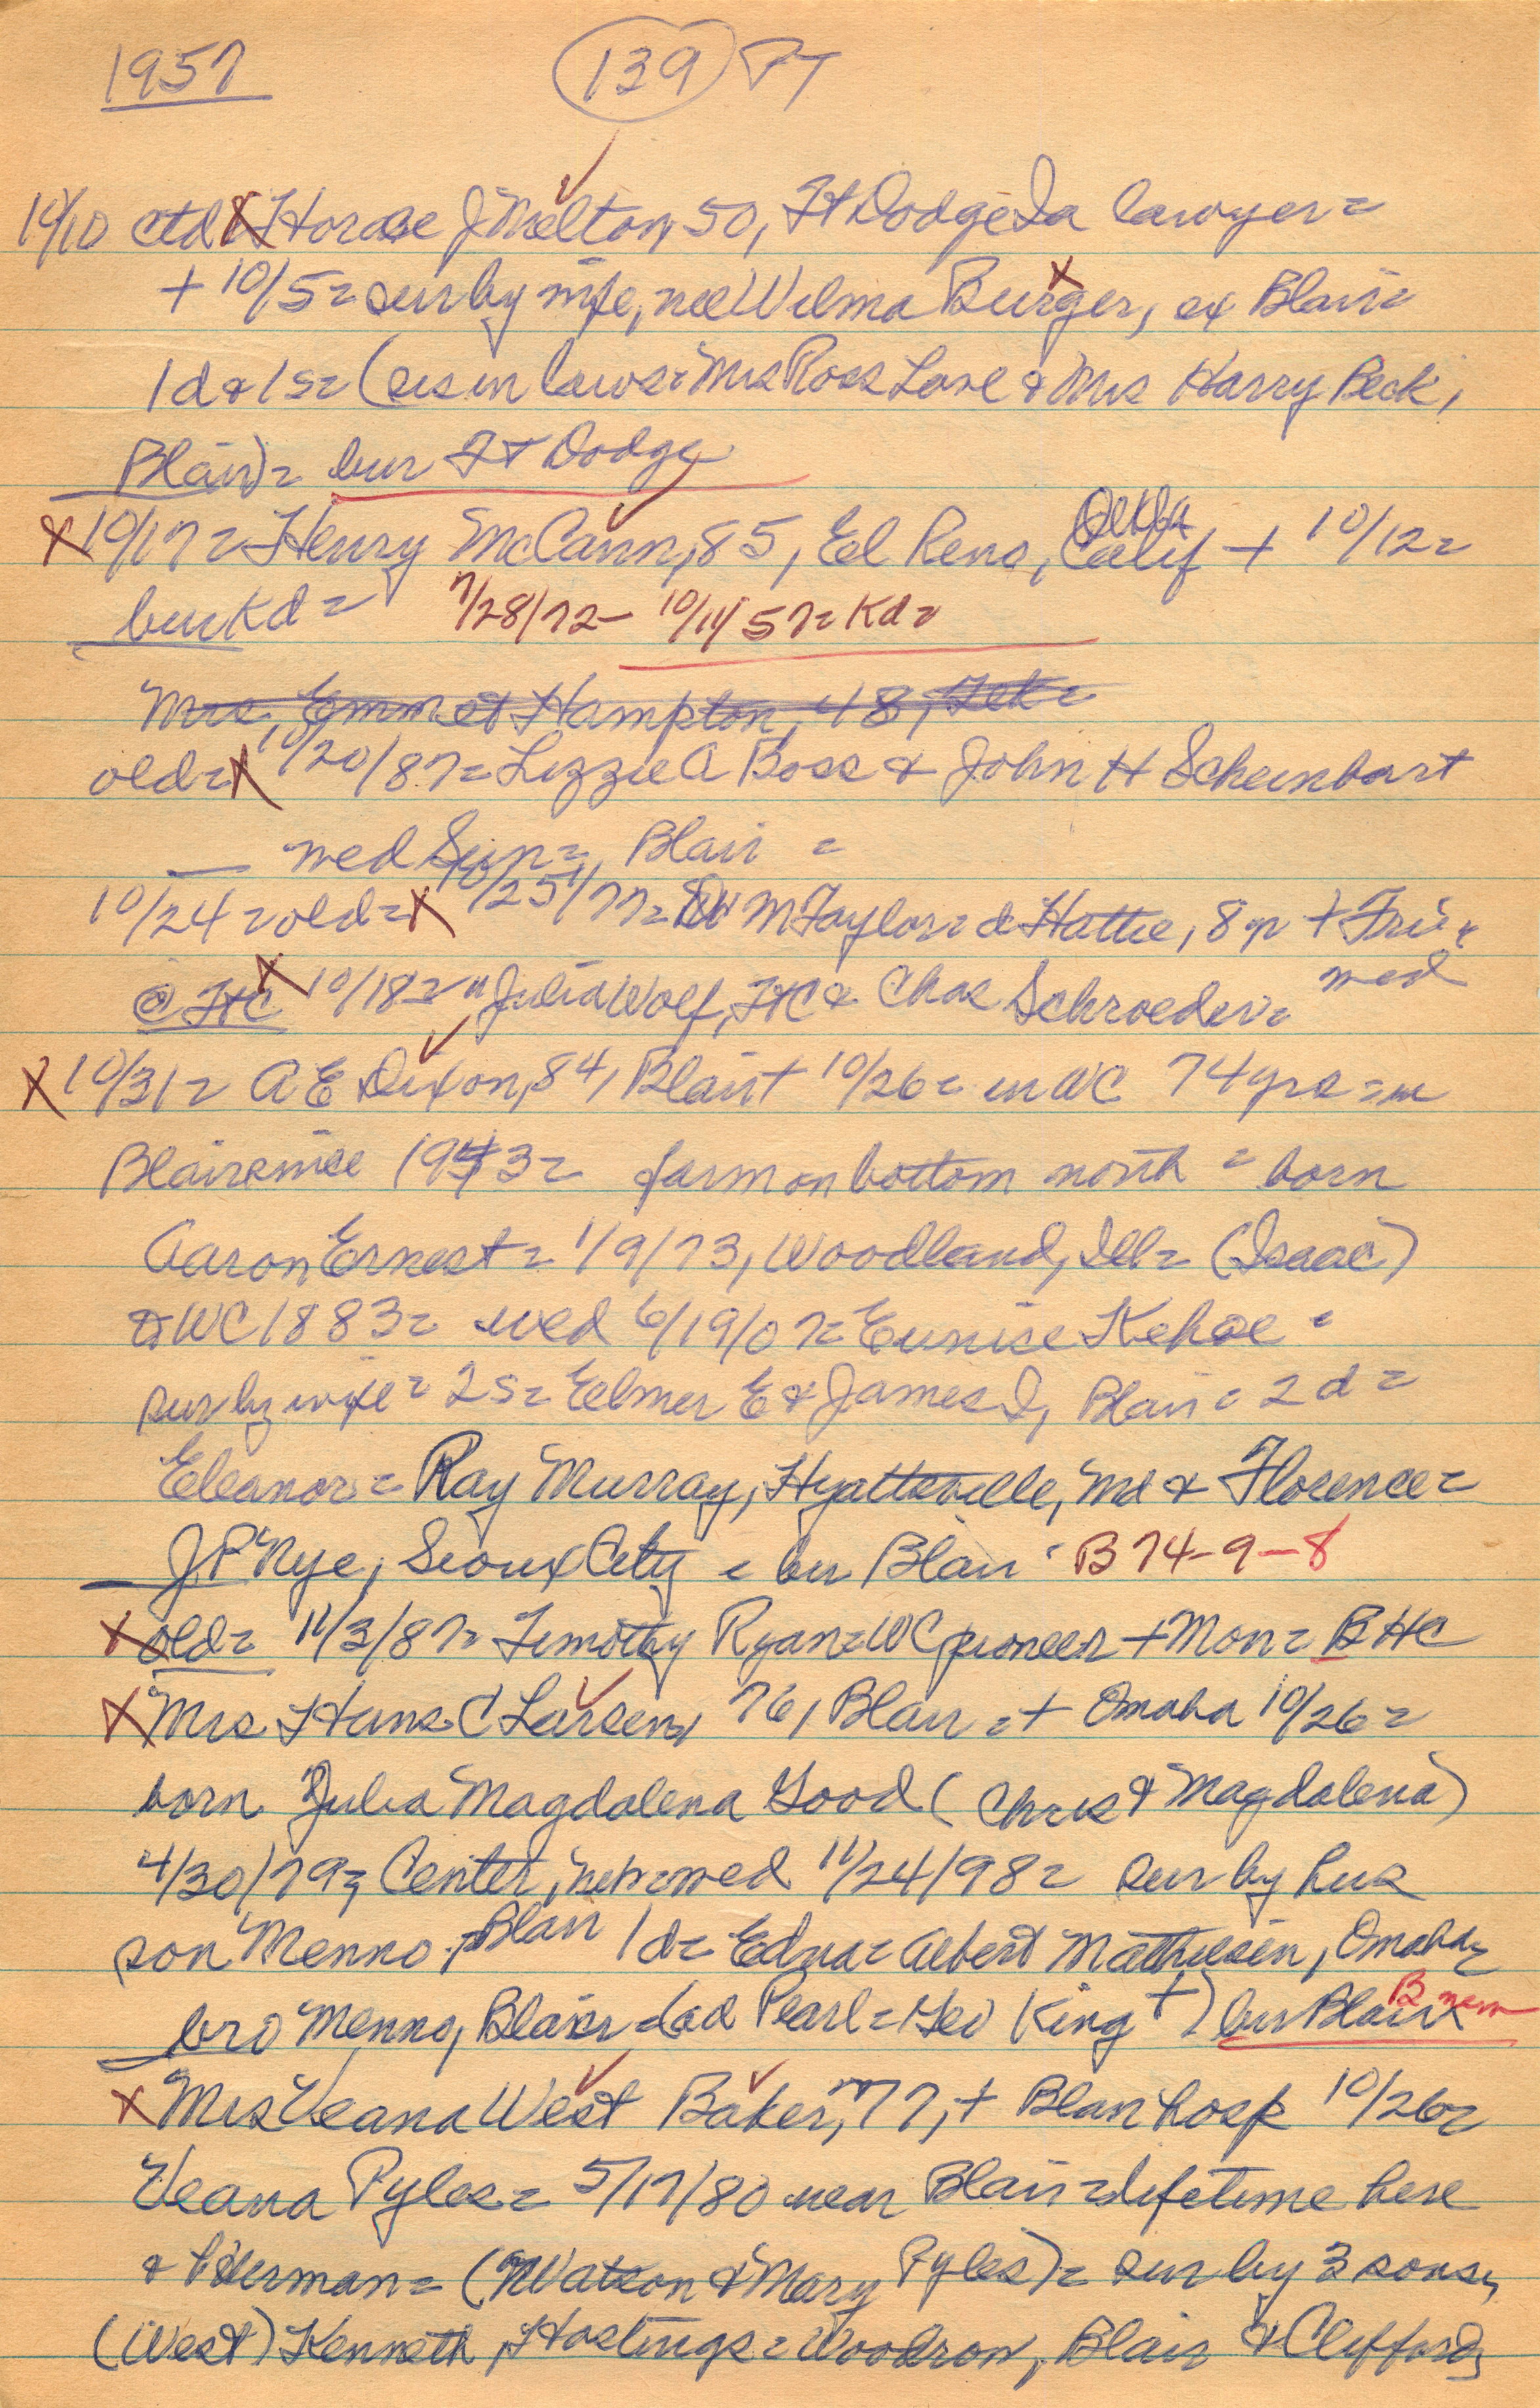 1957 139 PT
10/10 ctd X Horace J Melton, 50, Ft Dodge Ia lawyer =
+ 10/5 = sur by wife, nee Wilma Burger, ex Blair =
1 d & 1 s = (sis in laws = Mrs Ross Lane & Mrs Harry Beck,
Blair) = bur Ft Dodge
X 10/17 = Henry McCann, 85, El Reno, Calif Okla + 10/12 =
bur Kd = 7/28/72 - 10/11/57 = Kd =
Mrs, Emmet Hampton, 48, Tek =
old = X 10/20/87 = Lizzie A Boss & John H Scheinbart
wed Sun =, Blair =
10/24 = old = X 10/25/77 = W M Taylor = d Hattie, 8 yr + Fri &
@ Ft C X 10/18 = " Julia Wolf, Ft C & Chas Schroeder = wed
X 10/31 = A E Dixon, 84, Blair + 10/26 = in WC 74 yrs = in
Blair since 1943 = farm on bottom north = born
Aaron Ernest = 1/9/73, Woodland, Ill = (Isaac)
to WC 1883 = wed 6/19/07 = Eunice Kehoe =
sur by wife = 2 s = Elmer E & James I, Blair = 2 d =
Eleanor = Ray Murray, Hyattsville, Md & Florence =
J P Nye, Sioux City = bur Blair = B 74-9-8
X old = 11/3/87 = Timothy Ryan = WC pioneer + Mon = B HC
X Mrs Hans C Larsen, 76, Blair = + Omaha 10/26 =
born Julia Magdalena Good (Chris & Magdalena)
4/30/79 = Center, Neb = wed 11/24/98 = sur by hus
son Menno, Blair 1 d = Edna = Albert Mathiesen, Omaha =
bro Menno, Blair = (ad Pearl = Geo King +) bur Blair B mem
X Mrs Veana West Baker, 77, + Blair hosp 10/26 =
Veana Pyles = 5/17/80 near Blair = lifetime here
& Herman = (Watson & Mary Pyles) = sur by 3 sons =
(West) Kenneth, Hastings = Woodrow, Blair & Clifford,